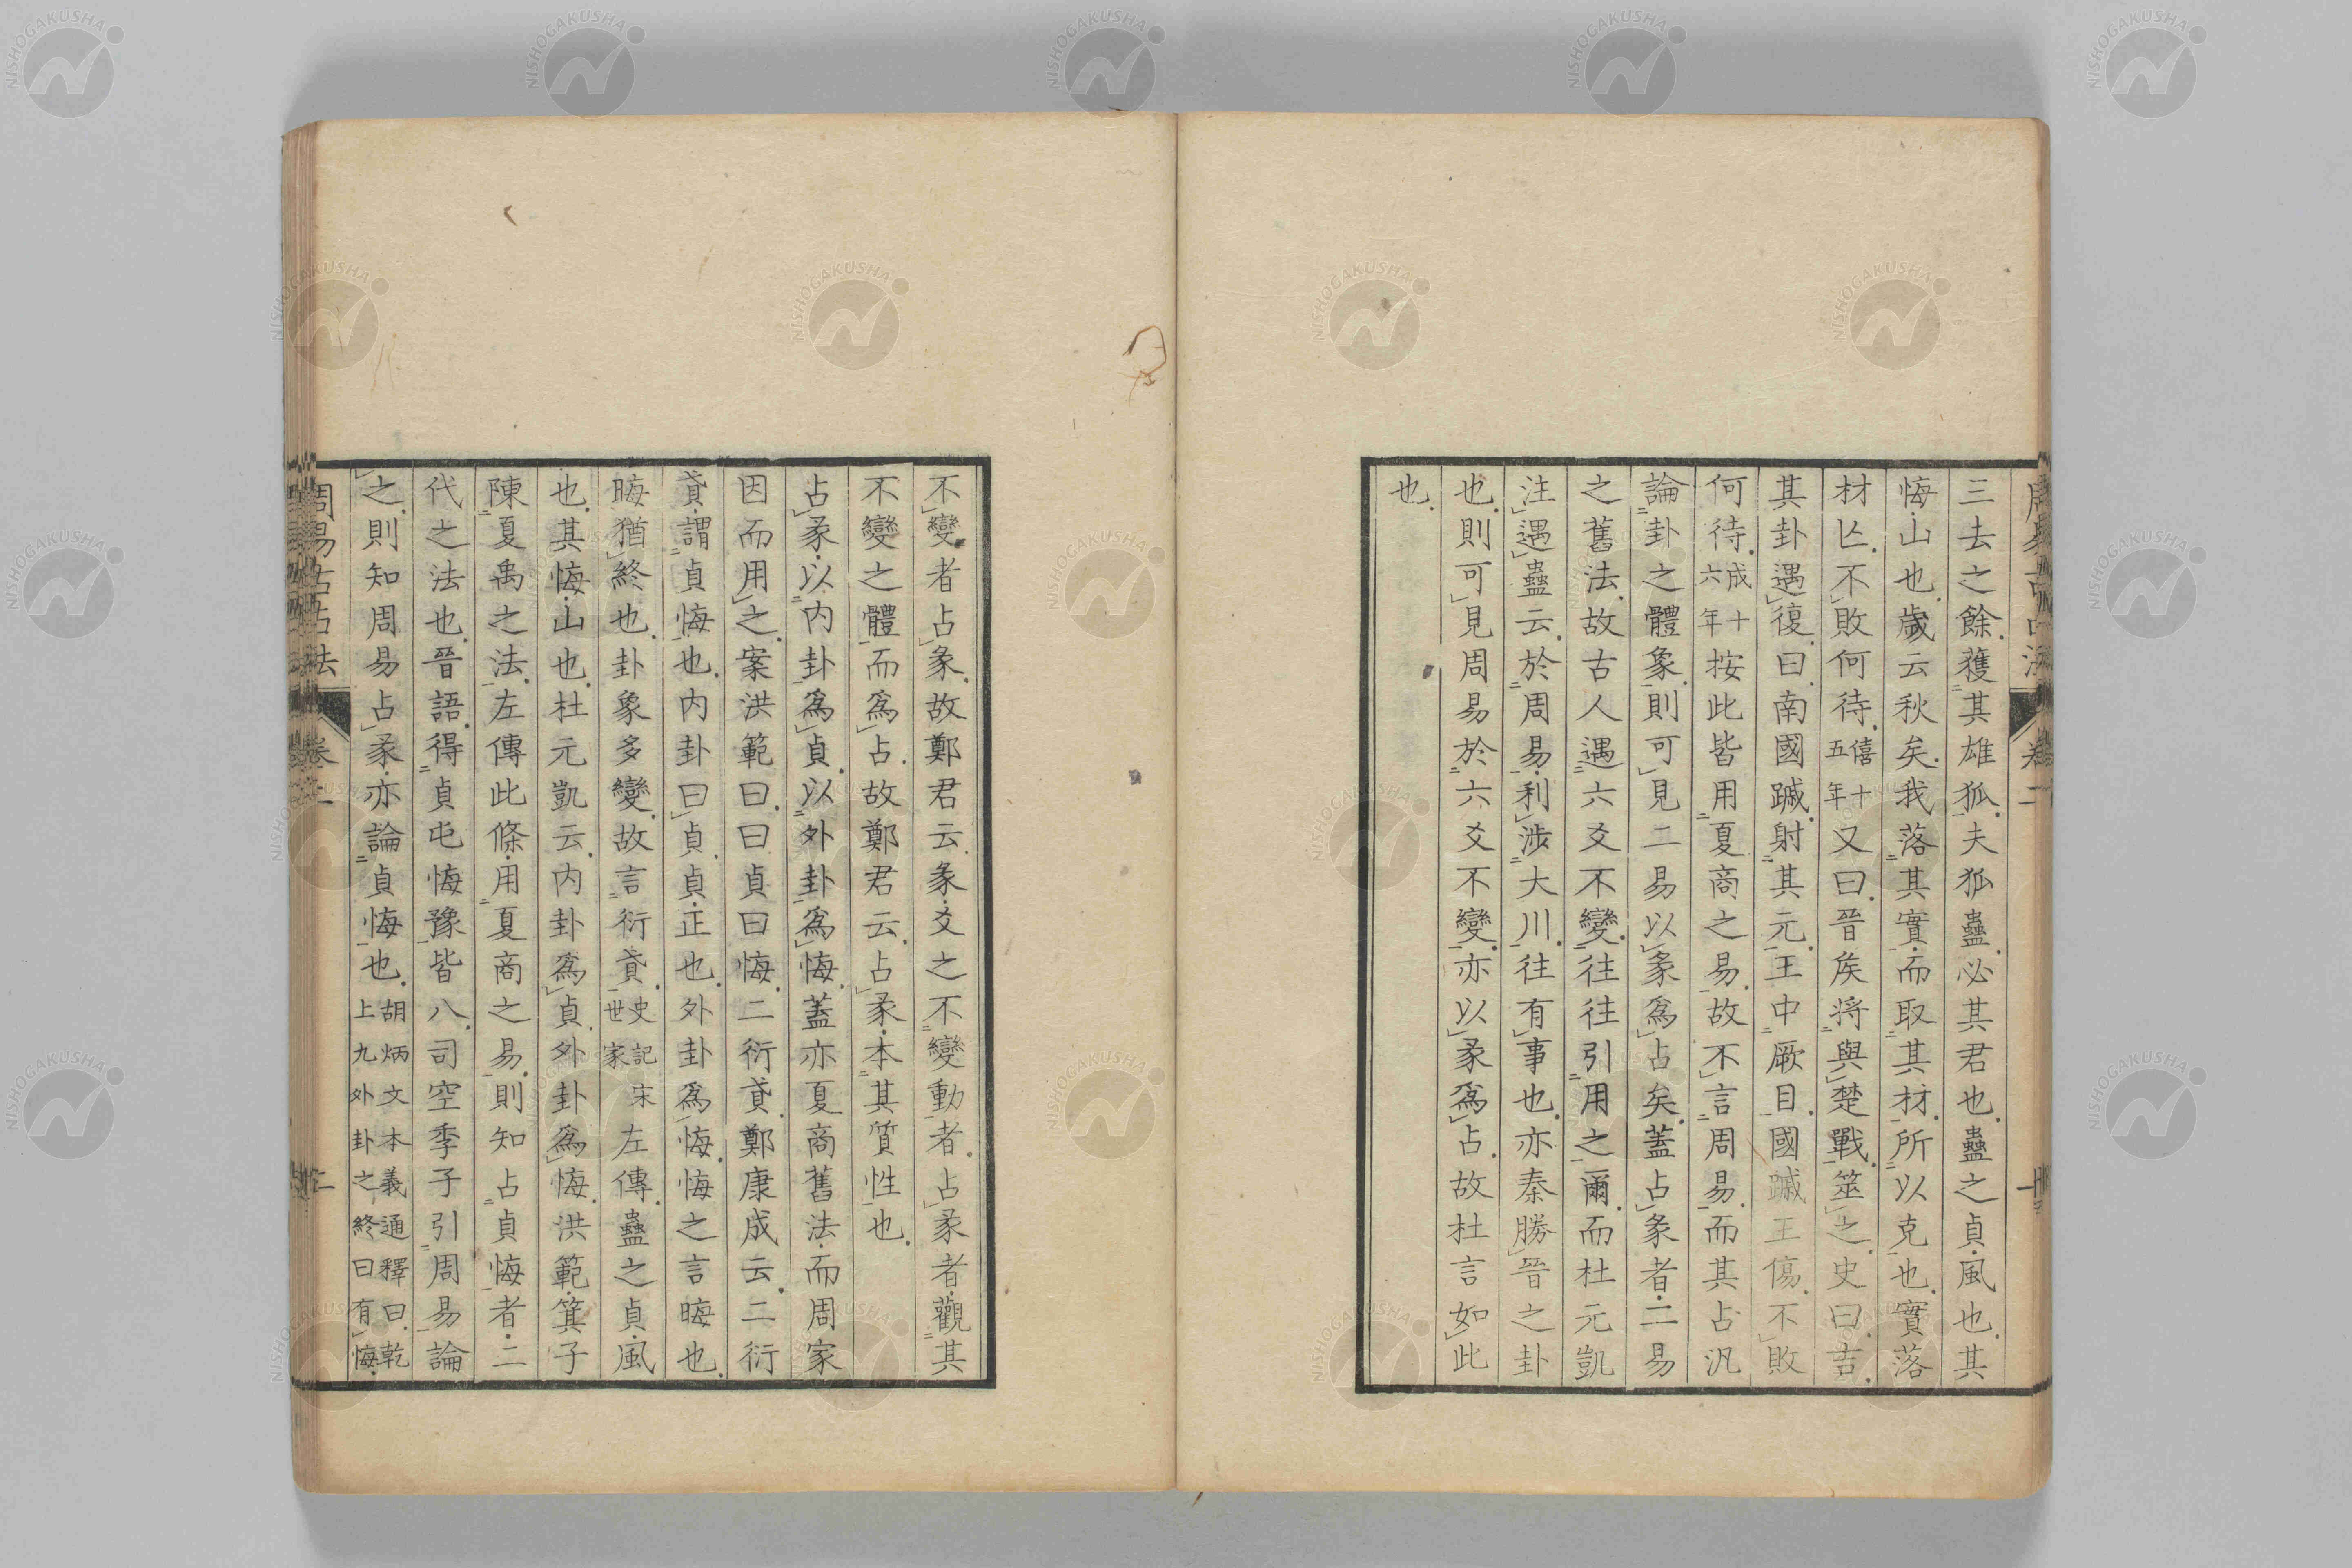 三去之餘獲其雄狐夫狐蠱必其君也蠱之貞風也其
悔山也歲云秋矣我落其實而取其材所以克也實落
材亾不敗何待僖十五年又曰晉矦將與楚戰筮之史曰吉
其卦遇復曰南國䠞射其元王中厥目國䠞王傷不敗
何待成十六年按此皆用夏商之易故不言周易而其占汎
論卦之體象則可見二易以彖爲占矣蓋占彖者二易
之舊法故古人遇六爻不變往往引用之爾而杜元凱
注遇蠱云於周易利涉大川往有事也亦秦勝晉之卦
也則可見周易於六爻不變亦以彖爲占故杜言如此
也
不變者占彖故鄭君云彖爻之不變動者占彖者觀其
不變之體而爲占故鄭君云占彖本其質性也
占彖以内卦爲貞以外卦爲悔蓋亦夏商舊法而周家
因而用之案洪範曰曰貞曰悔二衍貣鄭康成云二衍
貣謂貞悔也内卦曰貞貞正也外卦爲悔悔之言晦也
晦猶終也卦象多變故言衍貣史記宋世家左傳蠱之貞風
也其悔山也杜元凱云内卦爲貞外卦爲悔洪範箕子
陳夏禹之法左傳此條用夏商之易則知占貞悔者二
代之法也晉語得貞屯悔豫皆八司空季子引周易論
之則知周易占彖亦論貞悔也胡炳文本義通釋曰乾上九外卦之終曰有悔
周易占法
卷二